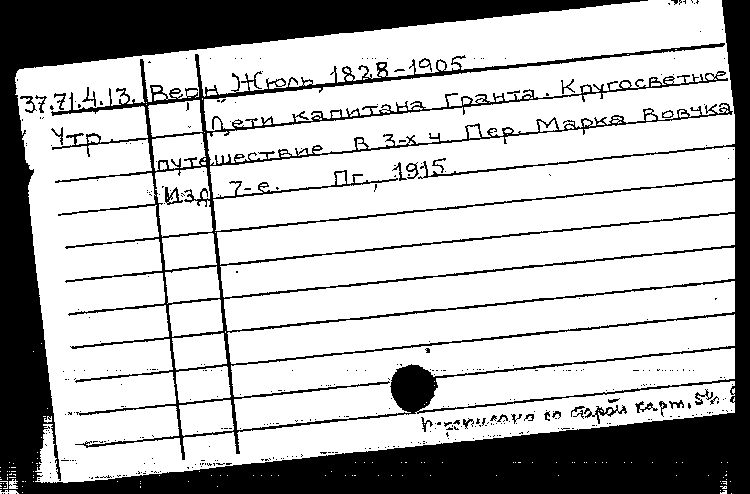 37.71.4.13. Верн, Жюль, 1828-1905
Утр. Дети капитана Гранта. Кругосветное
путешествие в 3-х ч. Пер. Марка Вовчка
Изд. 7-е. Пг., 1915.
Переписано со старой карт.